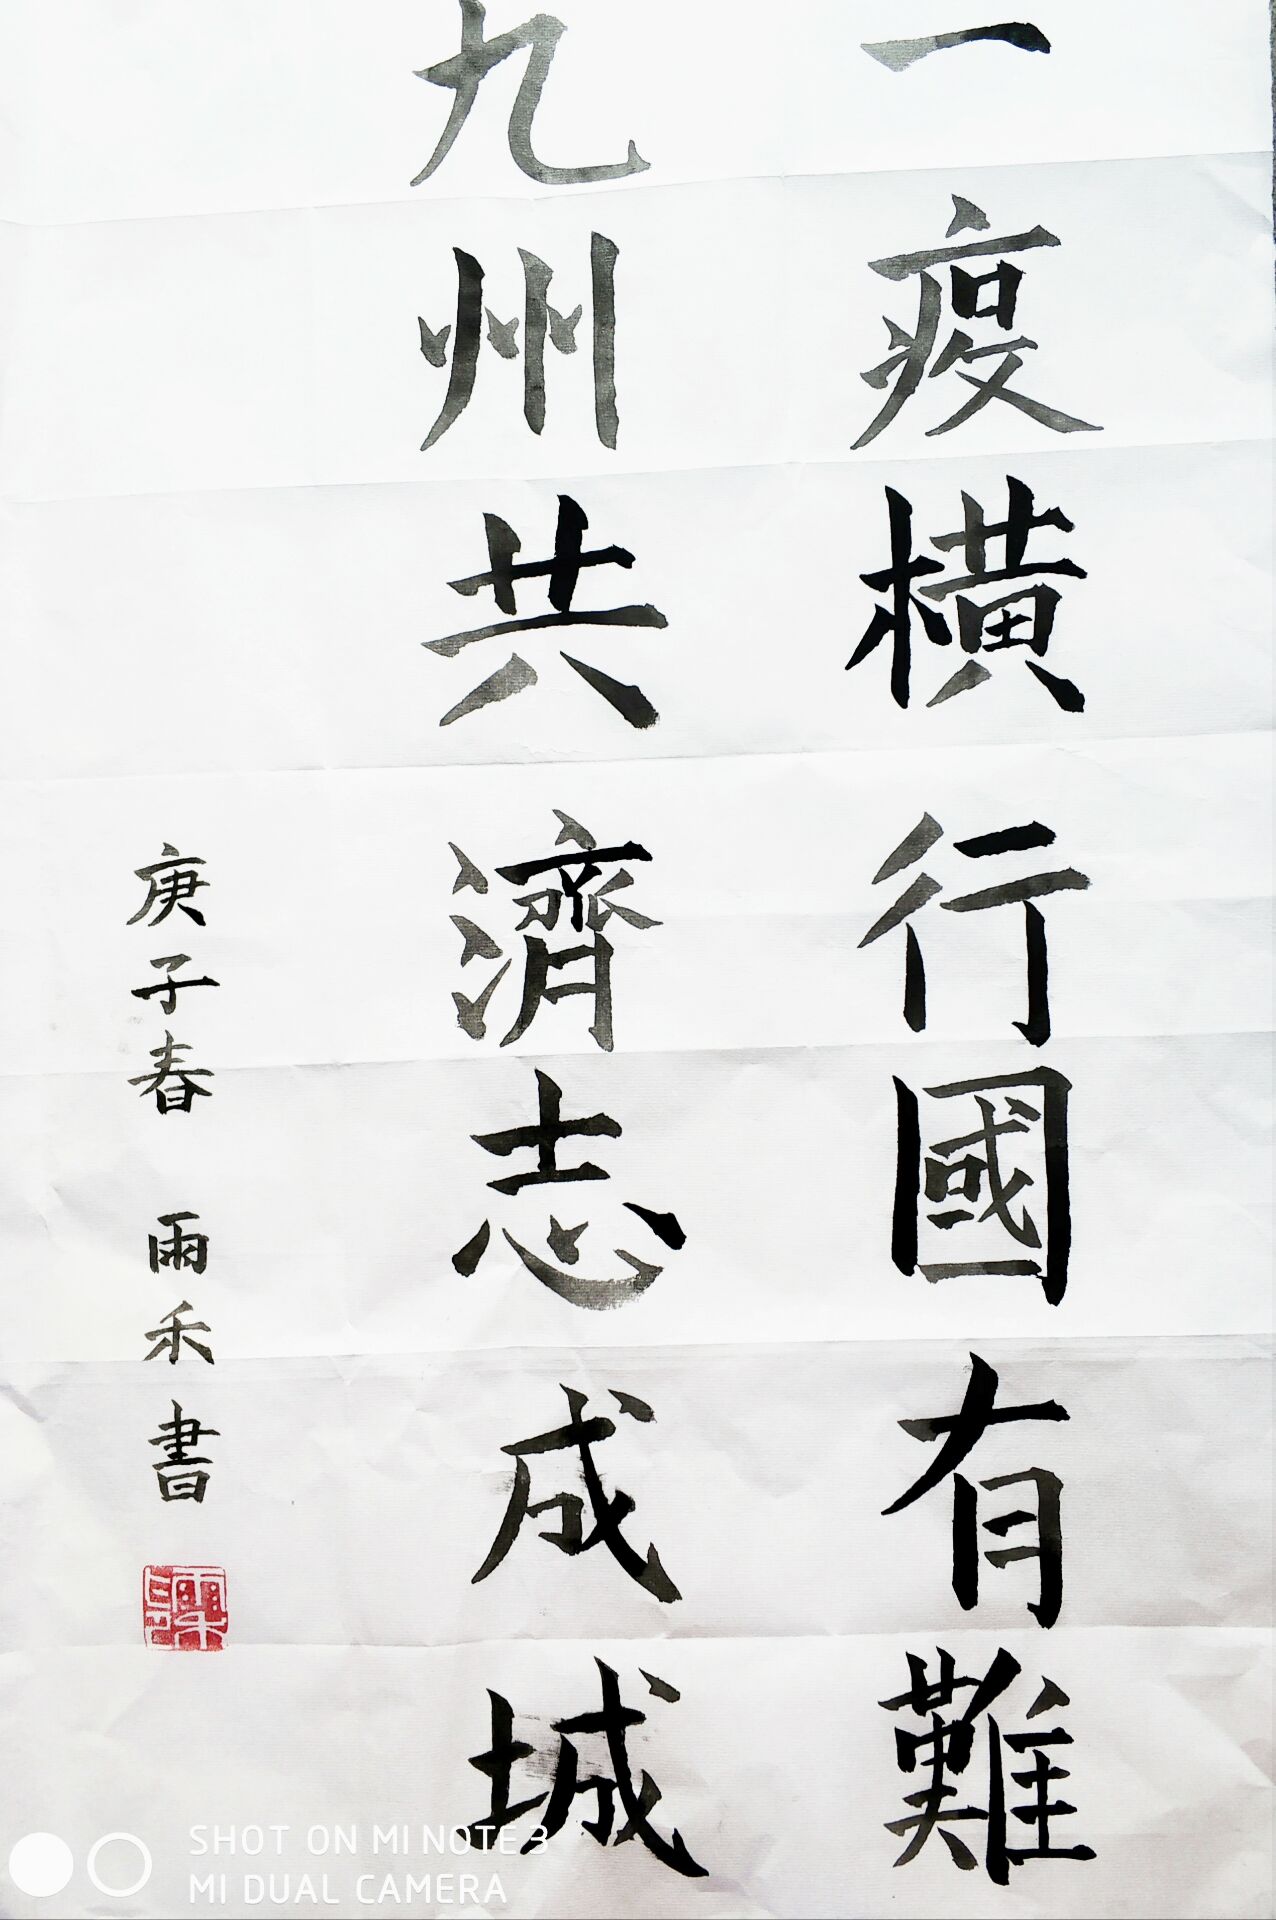 一疫橫行國有難
九州共濟志成城
庚子春 雨禾書
SHOT ON MI NOTE 3
MI DUAL CAMERA